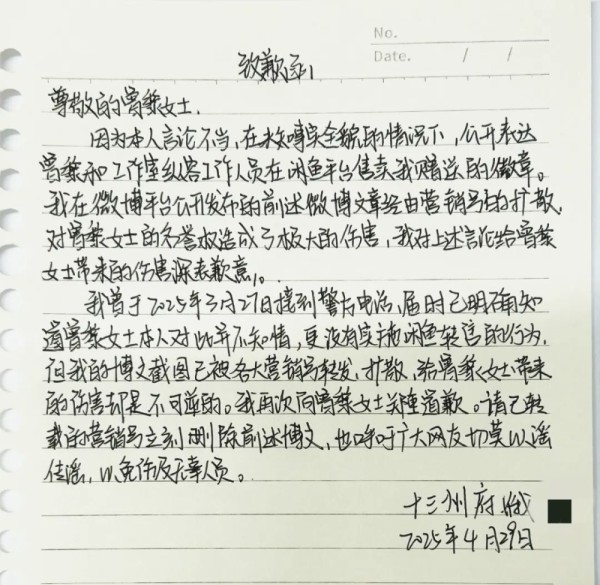 No.
Date. / /
致歉函
尊敬的曾黎女士：
因为本人言论不当，在未核实全貌的情况下，公开表达
曾黎和工作室纵容工作人员在闲鱼平台售卖我赠送的徽章。
我在微博平台公开发布的前述微博文章经由营销号的扩散，
对曾黎女士的名誉权造成了极大的伤害，我对上述言论给曾黎
女士带来的伤害深表歉意。
我曾于2025年3月27日接到警方电话，届时已明确知
道曾黎女士本人对此并不知情，更没有实施闲鱼转售的行为，
但我的博文截图已被各大营销号转发，扩散，给曾黎女士带来
的伤害却是不可逆的。我再次向曾黎女士郑重道歉。请已转
载的营销号立刻删除前述博文，也呼吁广大网友切莫以谣
传谣，以免伤及无辜人员。
十三州府
2025年4月29日